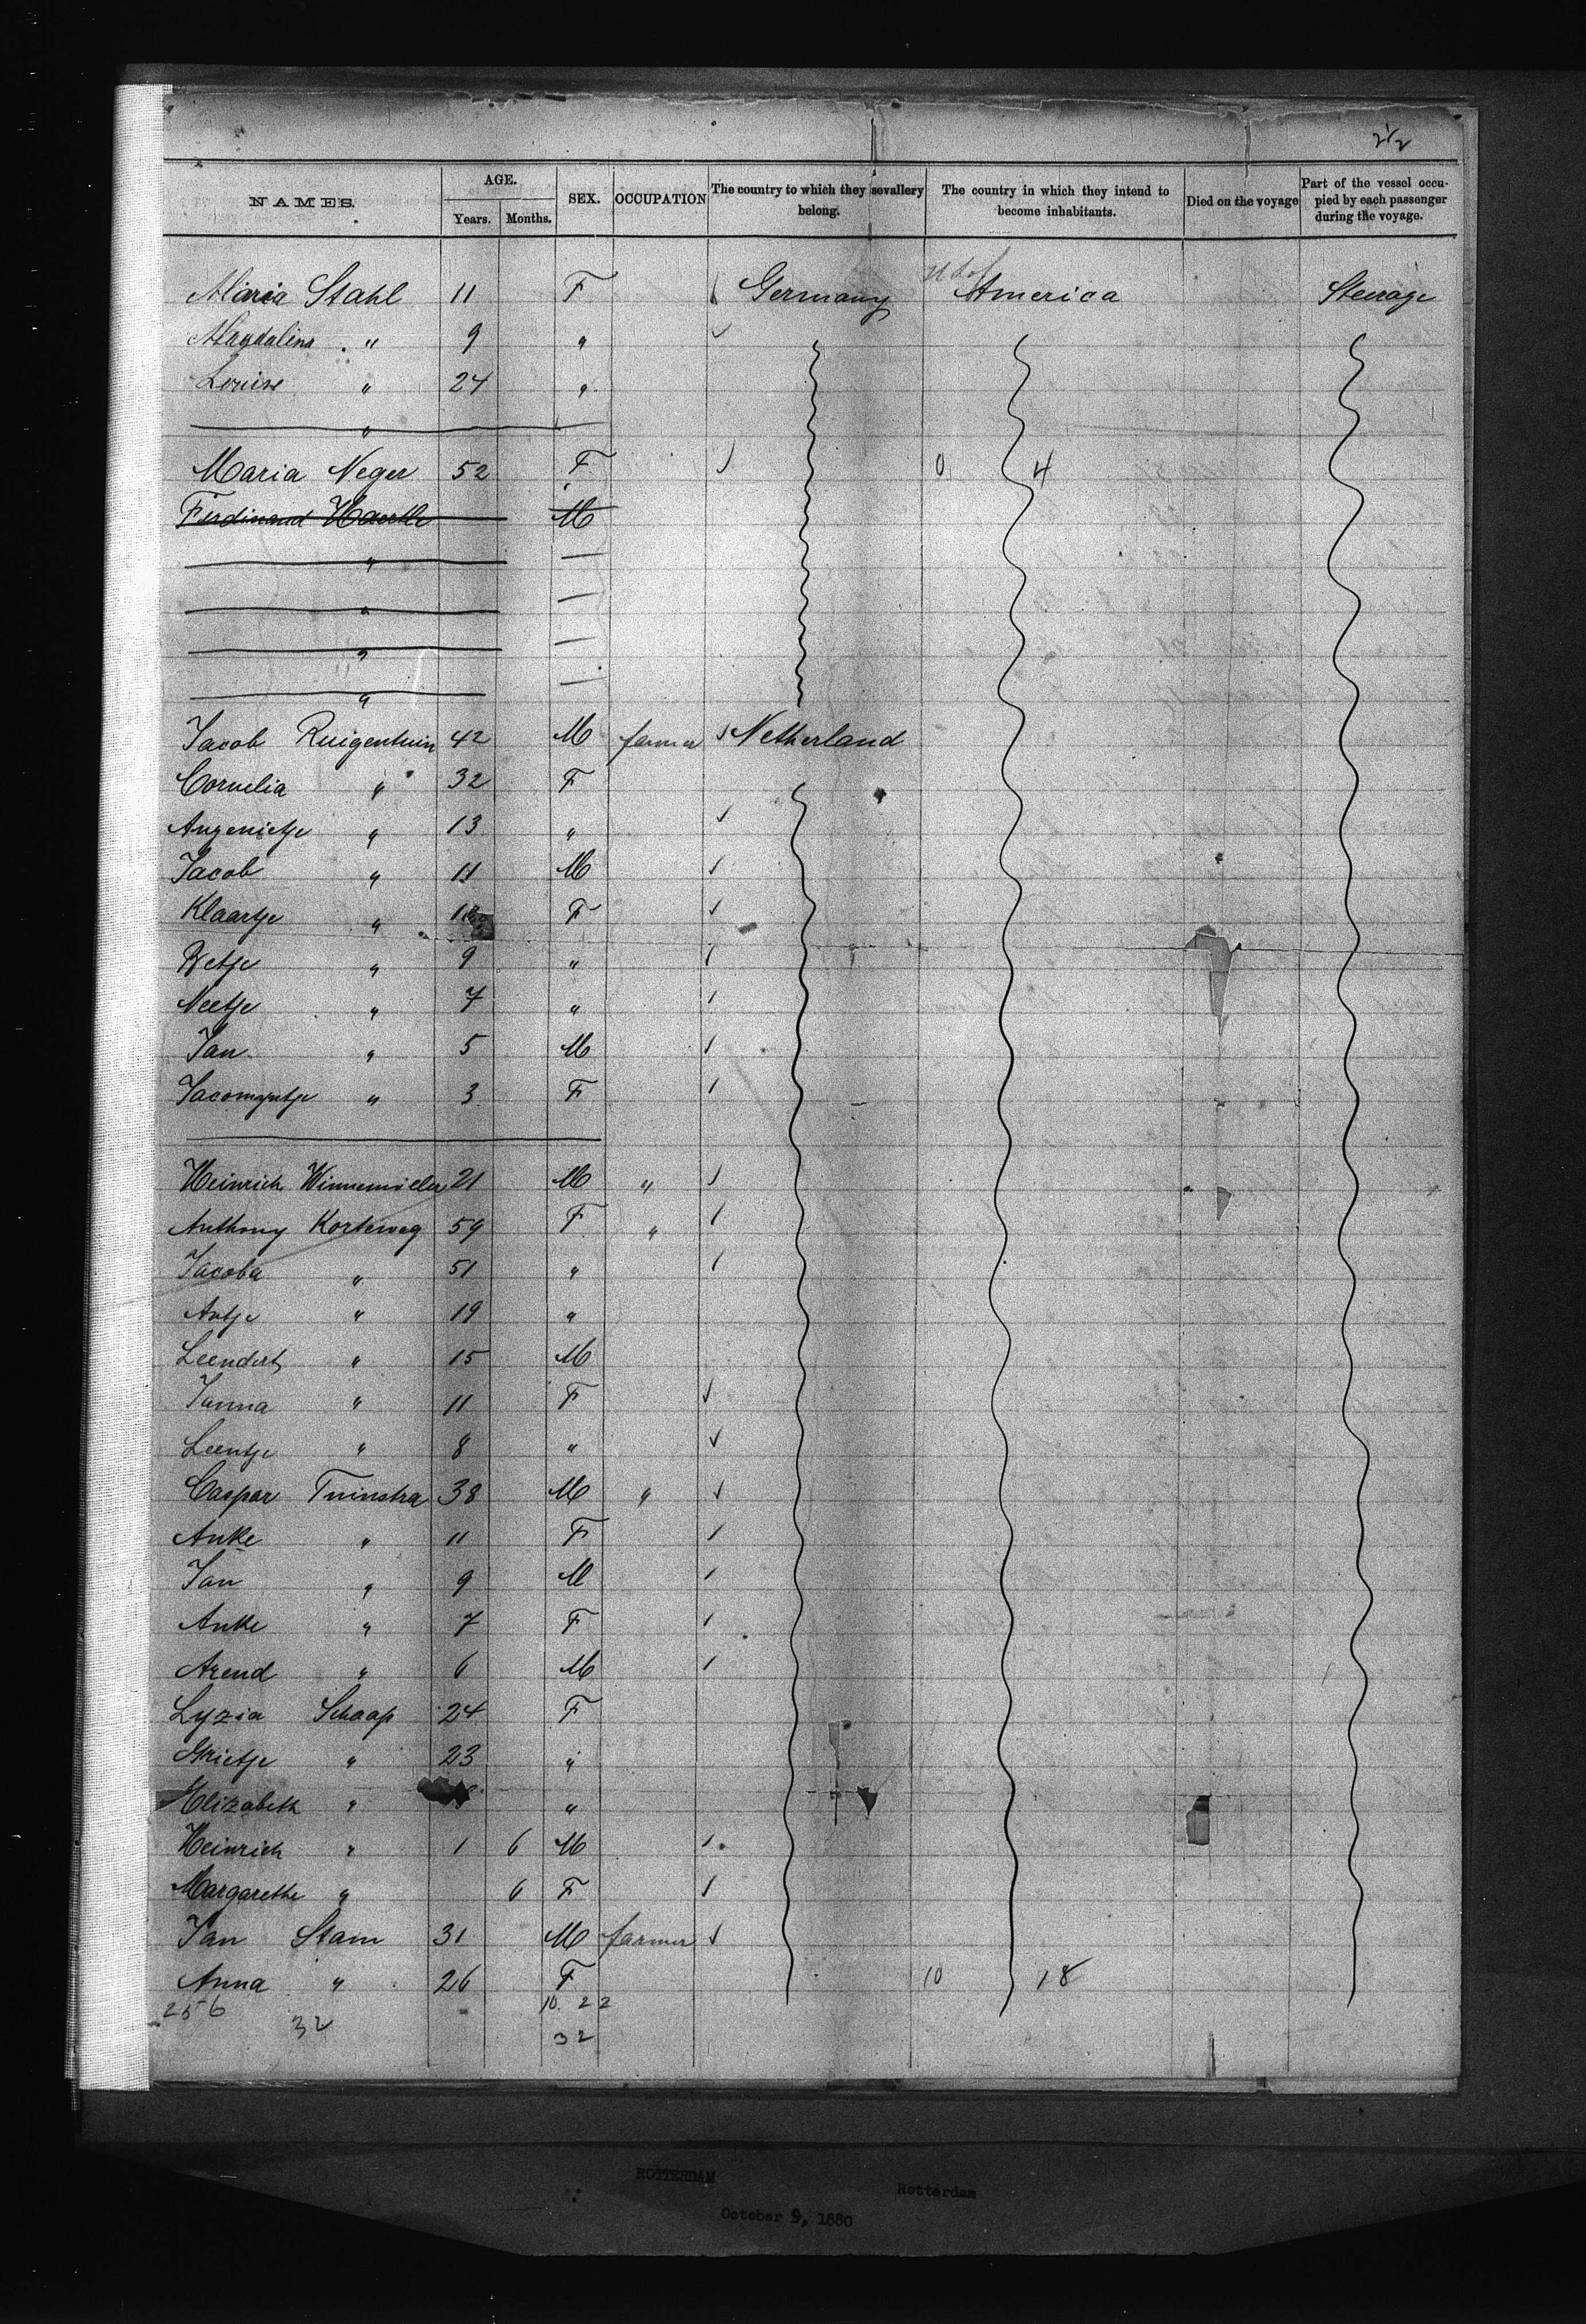 2 1/2
NAMES. AGE. Years. Months. SEX. OCCUPATION The country to which they sevallery belong. The country in which they intend to become inhabitants. Died on the voyage Part of the vessel occupied by each passenger during the voyage.
Maria Stahl 11 F Germany U S of America Steerage
Magdalina " 9 "
Louise " 24 "
"
Maria Neger 52 F 0 4
Ferdinand M
"
"
"
"
Jacob Ruigentuin 42 M farmer Netherland
Cornelia " 32 F
Angenietje " 13 "
Jacob " 11 M
Klaartje " F
Betje " 9 "
Neetje " 7 "
Jan " 5 M
Jacomyntje " 3 F
Heinrich 21 M "
Anthony Korteweg 59 F "
Jacoba " 51 "
Antje " 19 "
Leendert " 15 M
Janna " 11 F
Leentje " 8 "
Caspar Tuinstra 38 M "
Anke " 11 F
Jan " 9 M
Anke " 7 F
Arend " 6 M
Lyzia Schaap 24 F
Grietje " 23 "
Elizabeth " "
Heinrich " 1 6 M
Margarethe " 6 F
Jan Stam 31 M farmer
Anna " 26 F 10 18
256 32 10. 22
32
ROTTERDAM Rotterdam
October 9, 1880